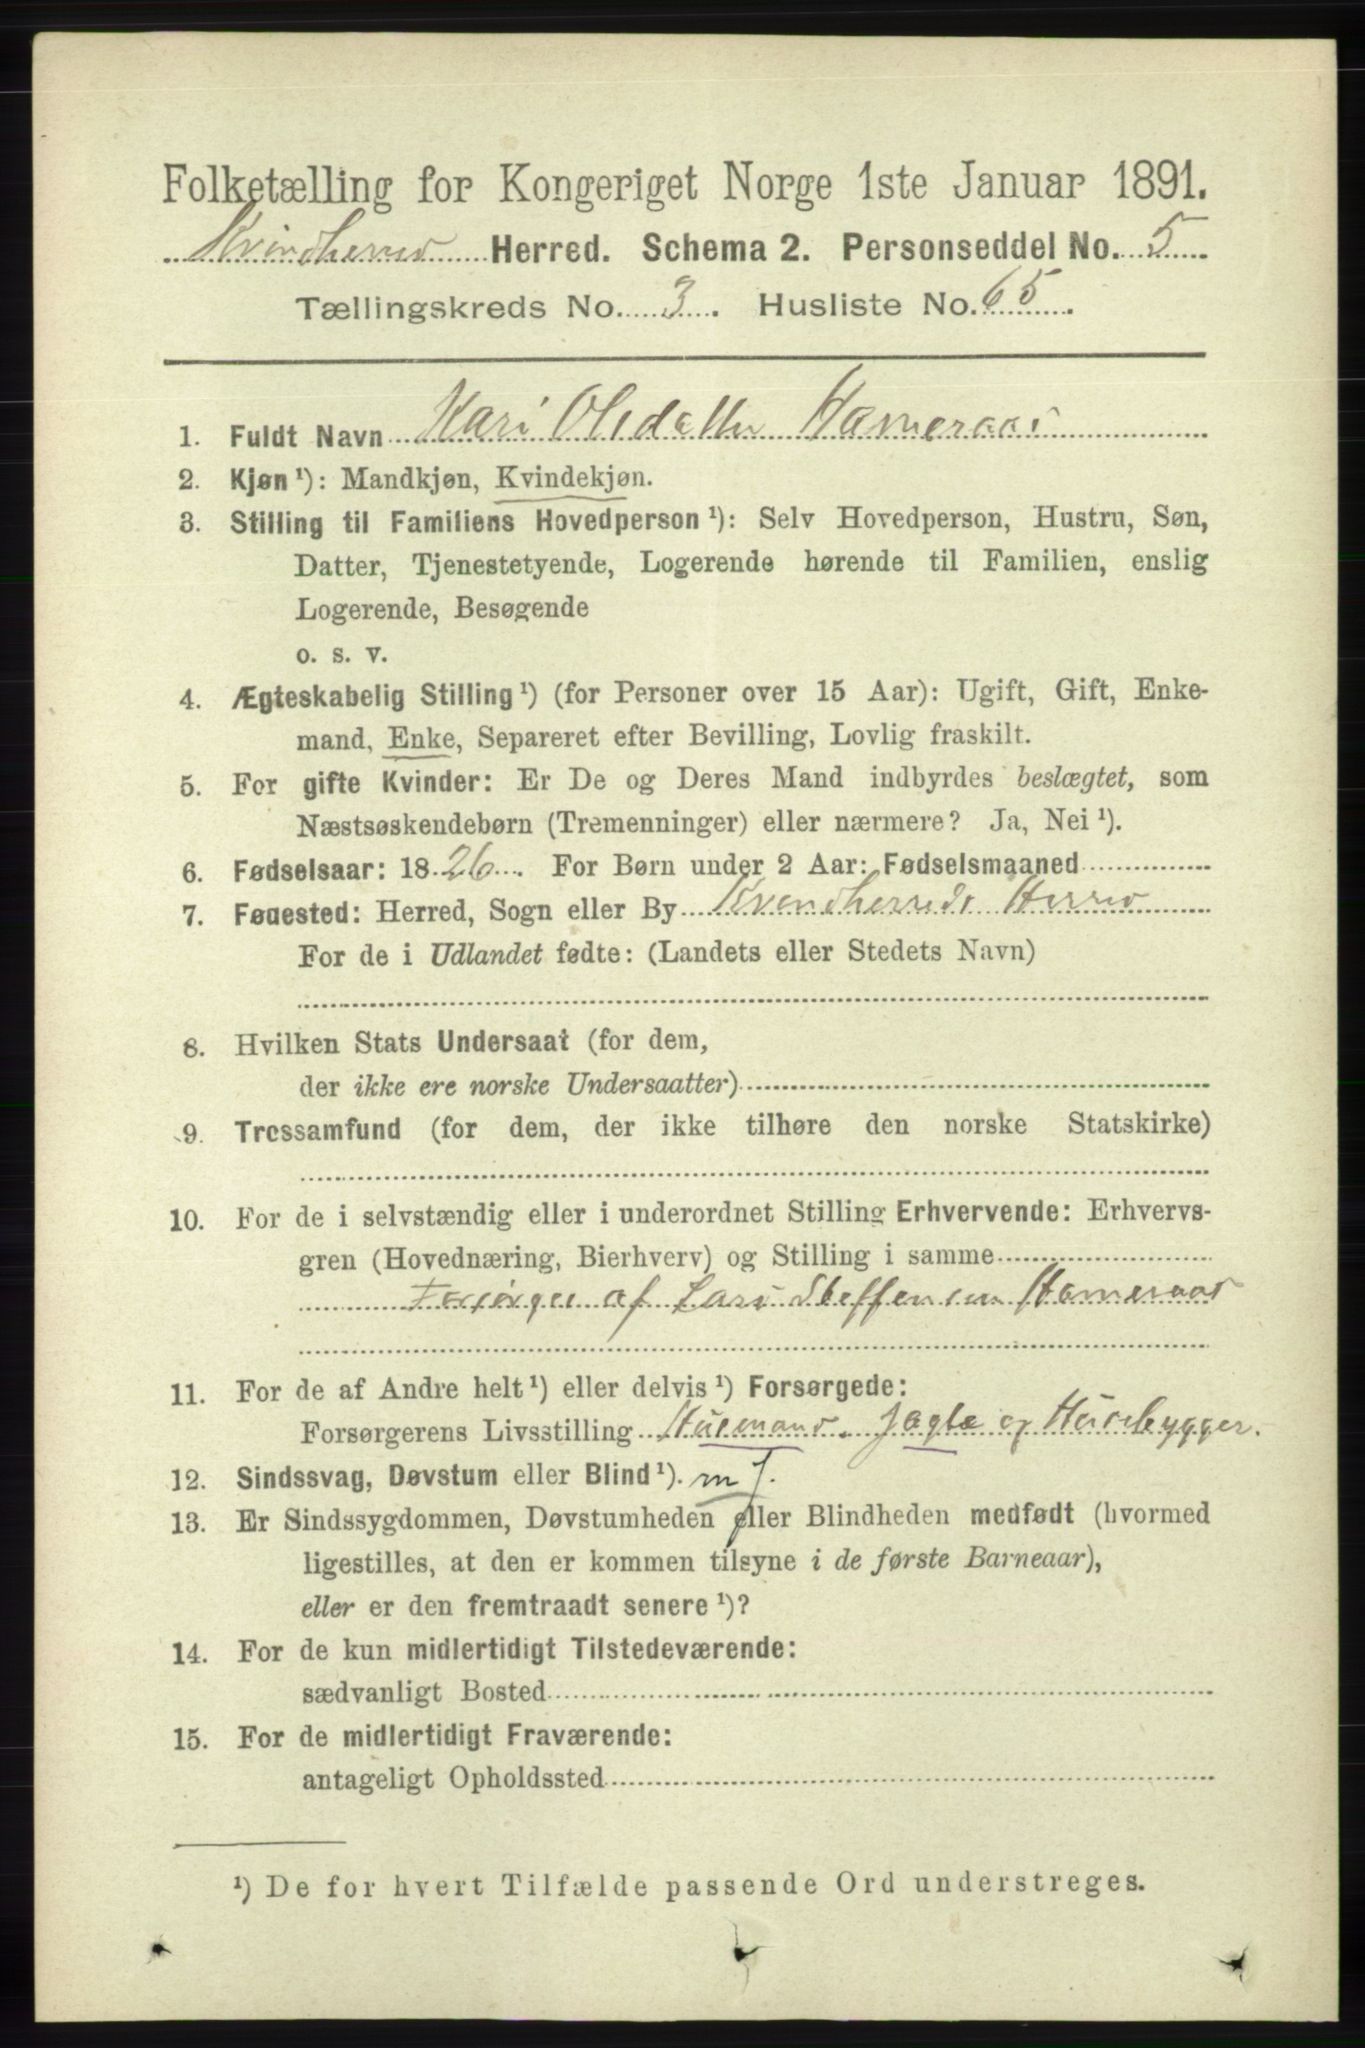 Folketælling for Kongeriget Norge 1ste Januar 1891.
Kvindherred Herred. Schema 2. Personseddel No. 5
Tællingskreds No. 3. Husliste No. 65.
1. Fuldt Navn Kari Olsdatter Hameraas
2. Kjøn ¹): Mandkjøn, Kvindekjøn.
3. Stilling til Familiens Hovedperson ¹): Selv Hovedperson, Hustru, Søn,
Datter, Tjenestetyende, Logerende hørende til Familien, enslig
Logerende, Besøgende
o. s. v.
4. Ægteskabelig Stilling ¹) (for Personer over 15 Aar): Ugift, Gift, Enke-
mand, Enke, Separeret efter Bevilling, Lovlig fraskilt.
5. For gifte Kvinder: Er De og Deres Mand indbyrdes beslægtet, som
Næstsøskendebørn (Tremenninger) eller nærmere? Ja, Nei ¹).
6. Fødselsaar: 1826. For Børn under 2 Aar: Fødselsmaaned
7. Fødested: Herred, Sogn eller By Kvendherreds Herred
For de i Udlandet fødte: (Landets eller Stedets Navn)
8. Hvilken Stats Undersaat (for dem,
der ikke ere norske Undersaatter)
9. Trossamfund (for dem, der ikke tilhøre den norske Statskirke)
10. For de i selvstændig eller i underordnet Stilling Erhvervende: Erhvervs-
gren (Hovednæring, Bierhverv) og Stilling i samme
Forsørges af Lars Steffensen Hameraas
11. For de af Andre helt ¹) eller delvis ¹) Forsørgede:
Forsørgerens Livsstilling Husmand. Jagte og Husebygger.
12. Sindssvag, Døvstum eller Blind ¹).
13. Er Sindssygdommen, Døvstumheden eller Blindheden medfødt (hvormed
ligestilles, at den er kommen tilsyne i de første Barneaar),
eller er den fremtraadt senere ¹)?
14. For de kun midlertidigt Tilstedeværende:
sædvanligt Bosted
15. For de midlertidigt Fraværende:
antageligt Opholdssted
¹) De for hvert Tilfælde passende Ord understreges.